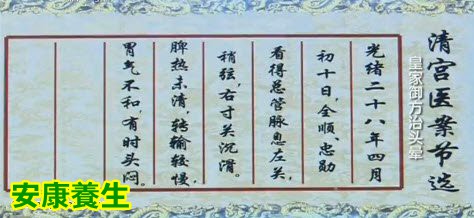 清宫医案节选
皇家御方治头晕
光绪二十八年四月
初十日，全顺、忠勋
看得总管脉息左关，
稍弦，右寸关沉滑。
脾热未清，转输较慢，
胃气不和，有时头闷。
安康養生